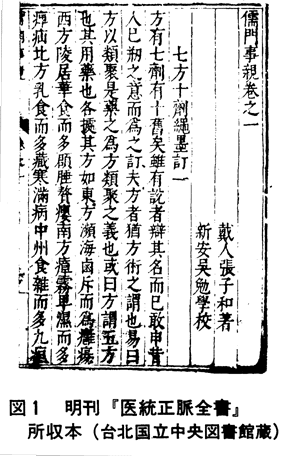 儒門事親卷之一
戴人張子和著
新安吳勉學校
七方十劑繩墨訂一
方有七劑有十舊矣雖有說者辯其名而已敢申昔
人已創之意而為之訂夫方者猶方術之謂也易曰
方以類聚是藥之為方類聚之義也或曰方謂五方
也其用藥也各據其方如東方瀕海鹵斥而為癰瘍
西方陵居華食而多頤腫贅癭南方瘴霧卑濕而多
痺疝北方乳食而多藏寒滿病中州食雜而多九疸
図1 明刊『医統正脈全書』
所収本（台北国立中央図書館蔵）